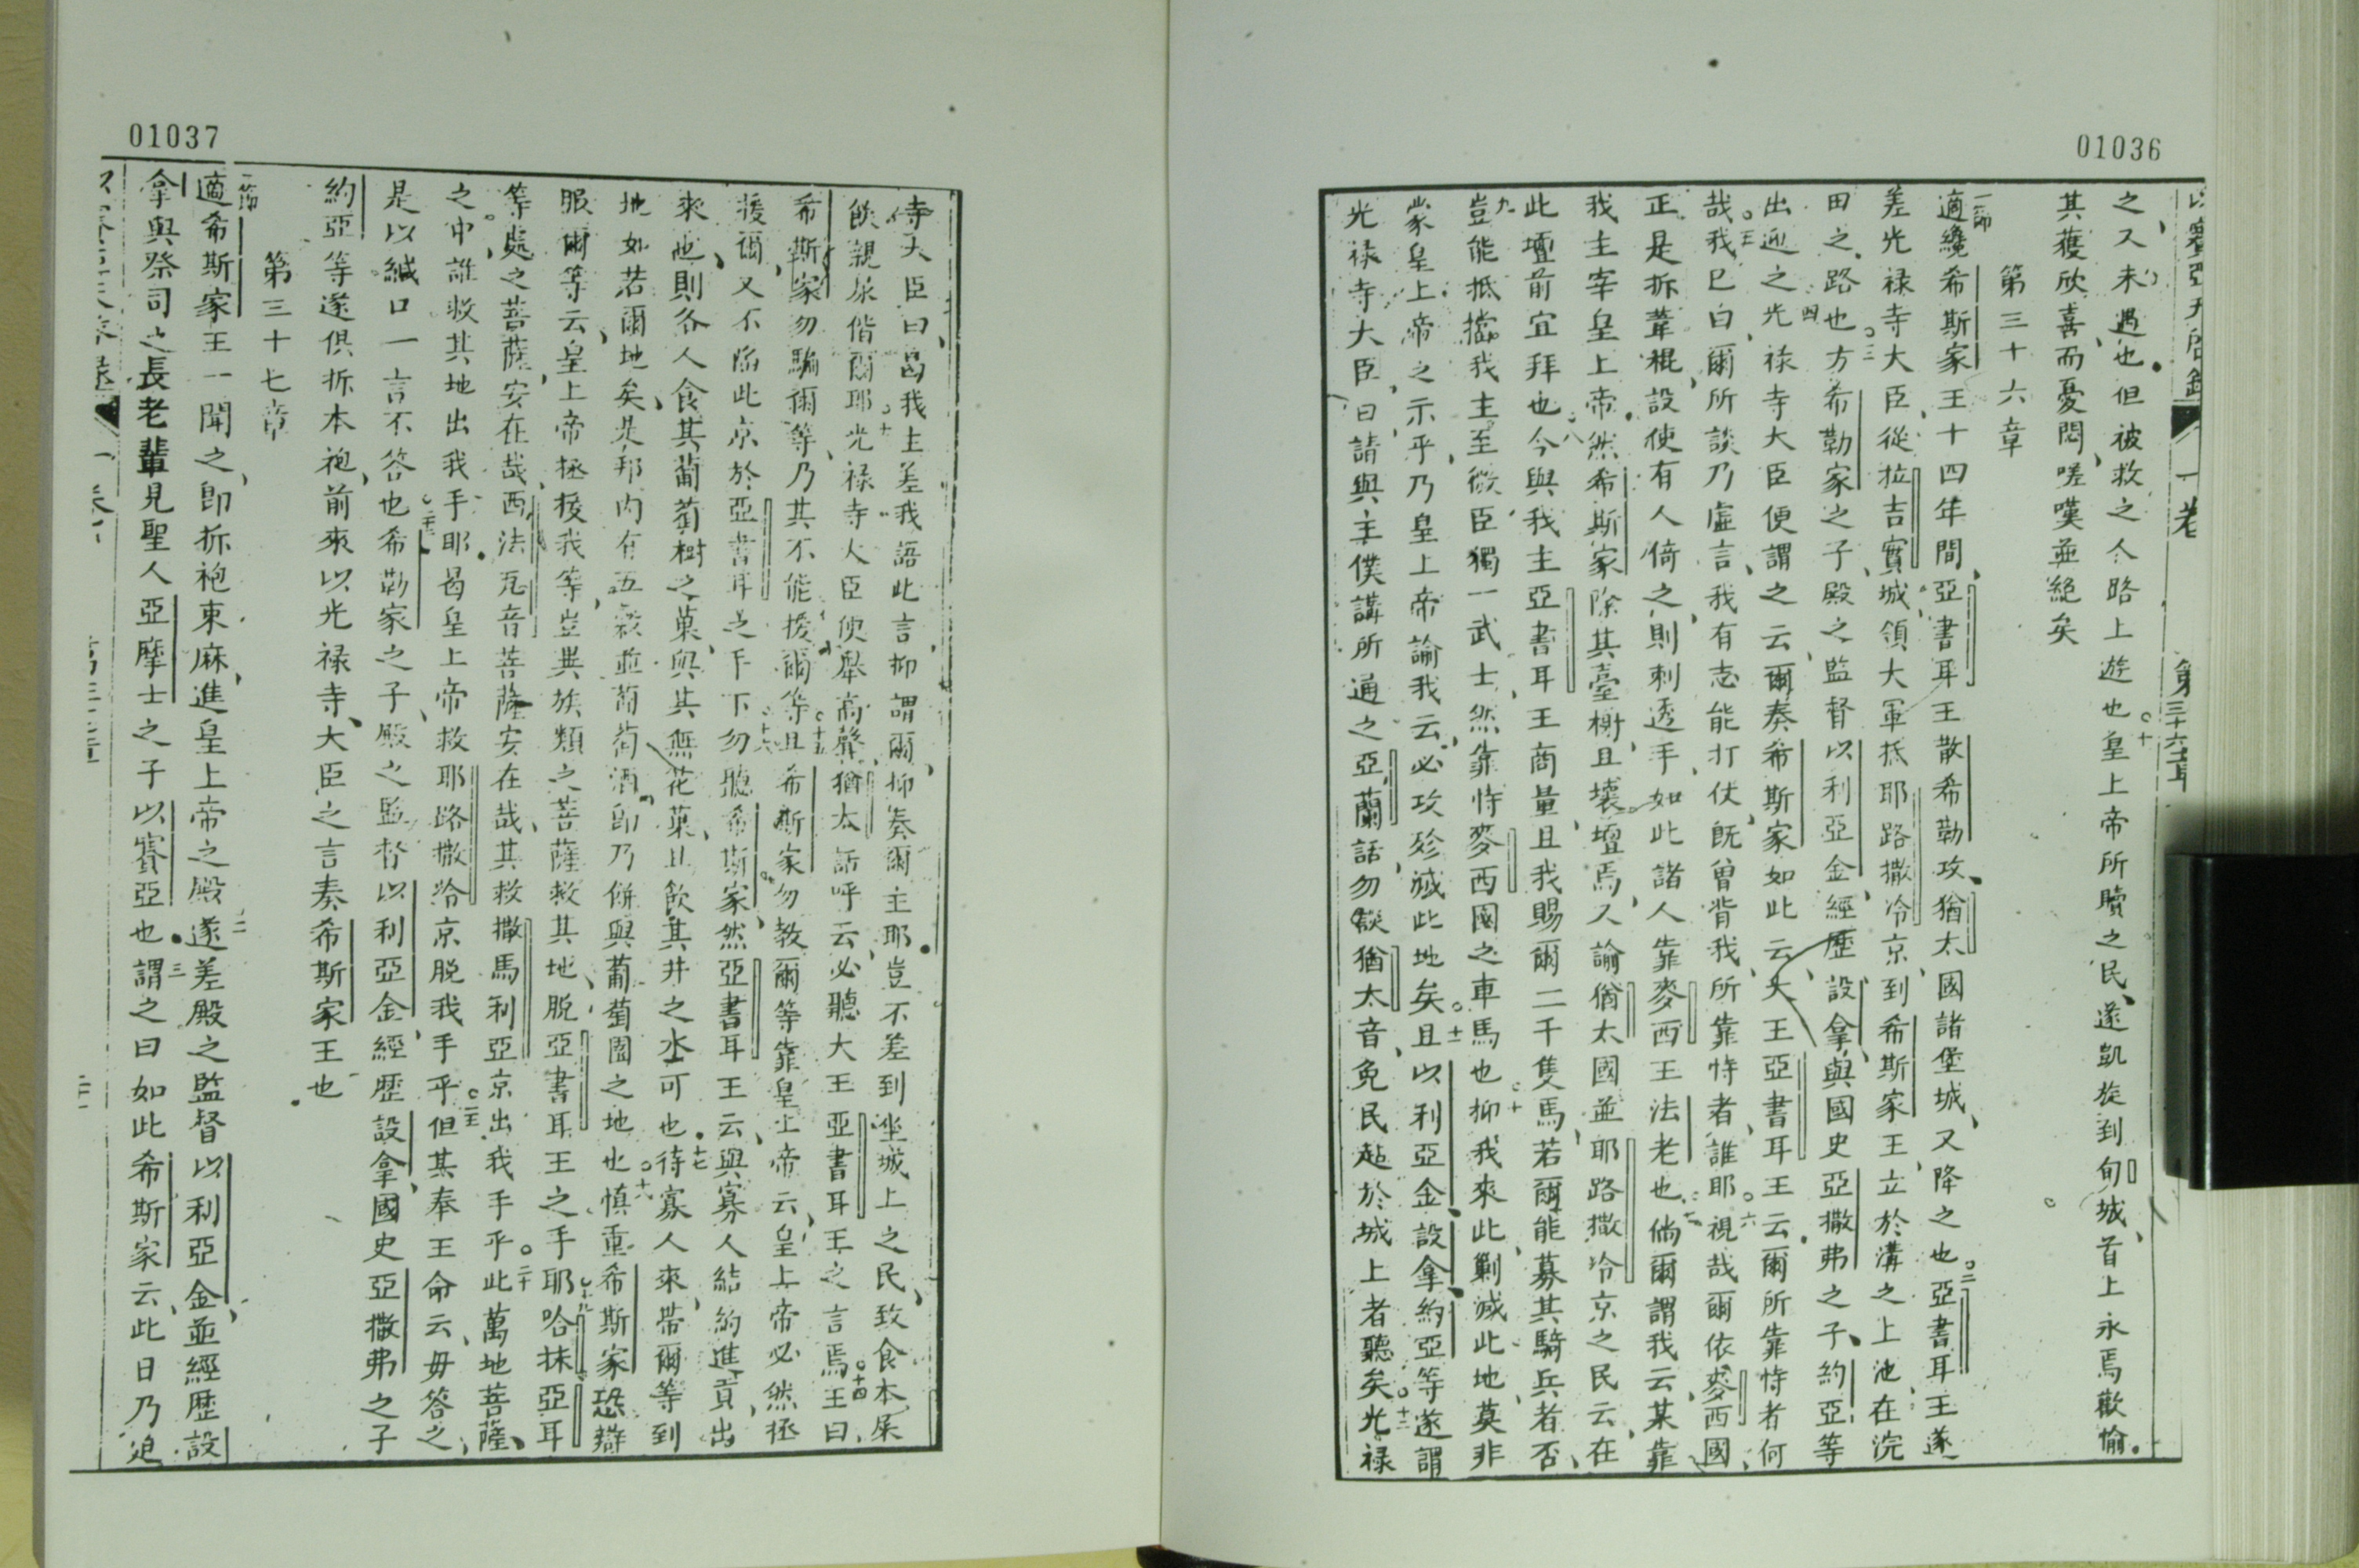 01036
第三十六章
之又未遇也但被救之仝路上遊也十皇上帝所贖之民遂凱旋到旬城首上永焉歡愉
其獲欣喜而憂悶嗟嘆並絕矣
第三十六章
一節適纔希斯家王十四年間亞書耳王散希勒攻猶太國諸堡城又降之也二亞書耳王遂
差光祿寺大臣從拉吉實城領大軍抵耶路撒冷京到希斯家王立於溝之上池在浣
田之路也三方希勒家之子殿之監督以利亞金經歷設拿與國史亞撒弗之子約亞等
出迎之四光祿寺大臣便謂之云爾奏希斯家如此云大王亞書耳王云爾所靠恃者何
哉五我已白爾所談乃虛言我有志能打仗既曾背我所靠恃者誰耶六視哉爾依麥西國
正是拆葦棍設使有人倚之則刺透手如此諸人靠麥西王法老也七倘爾謂我云某靠
我主宰皇上帝八然希斯家除其臺榭且壞壇焉又諭猶太國並耶路撒冷京之民云在
此壇前宜拜也今與我主亞書耳王商量且我賜爾二千隻馬若爾能募其騎兵者否
九豈能抵擋我主至微臣獨一武士然靠恃麥西國之車馬也十抑我來此剿滅此地莫非
蒙皇上帝之示乎乃皇上帝諭我云必攻殄滅此地矣十一且以利亞金設拿約亞等遂謂
光祿寺大臣曰請與主僕講所通之亞蘭話勿談猶太音免民趾於城上者聽矣十二光祿
01037
寺大臣曰曷我主差我語此言抑謂爾抑奏爾主耶豈不差到坐城上之民致食本屎
飲親尿偕爾耶十三光祿寺大臣便舉高聲猶太話呼云必聽大王亞書耳王之言焉十四王曰
希斯家勿騙爾等乃其不能援爾等十五且希斯家勿教爾等靠皇上帝云皇上帝必然拯
援爾又不陷此京於亞書耳之手下十六勿聽希斯家然亞書耳王云與寡人結約進貢出
來也則各人食其葡萄樹之菓與其無花菓且飲其井之水可也十七待寡人來帶爾等到
地如若爾地矣是邦內有五穀並葡萄酒即乃餅與葡萄園之地也十八慎重希斯家恐辯
服爾等云皇上帝拯援我等豈異族類之菩薩救其地脫亞書耳王之手耶十九哈抹亞耳
等處之菩薩安在哉西法瓦音菩薩安在哉其救撒馬利亞京出我手乎二十此萬地菩薩
之中誰救其地出我手耶曷皇上帝救耶路撒冷京脫我手乎二一但其奉王命云毋答之
是以緘口一言不答也二二希勒家之子殿之監督以利亞金經歷設拿國史亞撒弗之子
約亞等遂俱拆本袍前來以光祿寺大臣之言奏希斯家王也
第三十七章
一節適希斯家王一聞之即拆袍束麻進皇上帝之殿二遂差殿之監督以利亞金並經歷設
拿與祭司之長老輩見聖人亞摩士之子以賽亞也三謂之曰如此希斯家云此日乃迫